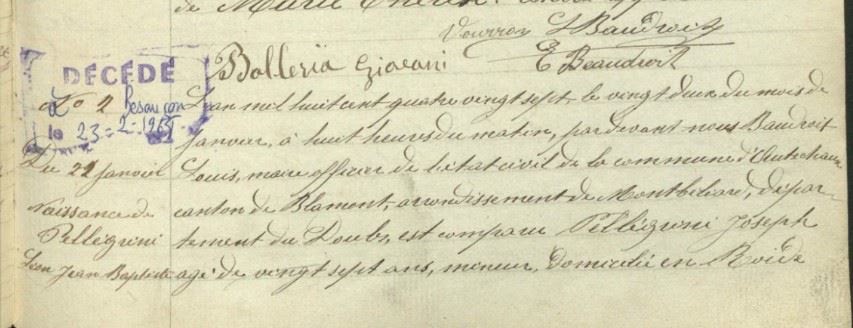 de Marie
Vourron L Baudroit
E Beaudroit
Balleria Giovani
DÉCÉDÉ
à Besançon
le 23-2-1965
No 2
Du 22 Janvier
Naissance de
Pellégrini
Léon Jean Baptiste
L'an mil huit cent quatre vingt sept, le vingt deux du mois de
Janvier, à huit heures du matin, par devant nous Baudroit
Louis, maire officier de l'état civil de la commune d'Autechaux
canton de Blamont, arrondissement de Montbéliard, dépar-
tement du Doubs, est comparu Pellégrini Joseph
agé de vingt sept ans, mineur, domicilié en Roide